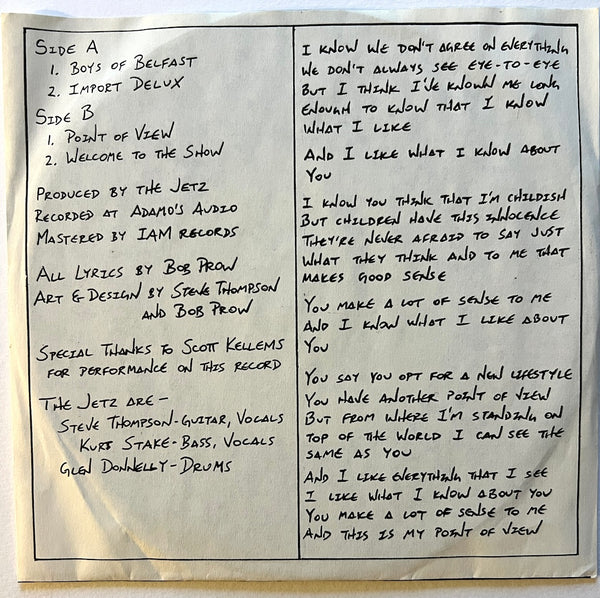 SIDE A
1. BOYS OF BELFAST
2. IMPORT DELUX
SIDE B
1. POINT OF VIEW
2. WELCOME TO THE SHOW
PRODUCED BY THE JETZ
RECORDED AT ADAMO'S AUDIO
MASTERED BY IAM RECORDS
ALL LYRICS BY BOB PROW
ART & DESIGN BY STEVE THOMPSON
AND BOB PROW
SPECIAL THANKS TO SCOTT KELLEMS
FOR PERFORMANCE ON THIS RECORD
THE JETZ ARE—
STEVE THOMPSON-GUITAR, VOCALS
KURT STAKE-BASS, VOCALS
GLEN DONNELLY-DRUMS
I KNOW WE DON'T AGREE ON EVERYTHING
WE DON'T ALWAYS SEE EYE-TO-EYE
BUT I THINK I'VE KNOWN ME LONG
ENOUGH TO KNOW THAT I KNOW
WHAT I LIKE
AND I LIKE WHAT I KNOW ABOUT
YOU
I KNOW YOU THINK THAT I'M CHILDISH
BUT CHILDREN HAVE THIS INNOCENCE
THEY'RE NEVER AFRAID TO SAY JUST
WHAT THEY THINK AND TO ME THAT
MAKES GOOD SENSE
YOU MAKE A LOT OF SENSE TO ME
AND I KNOW WHAT I LIKE ABOUT
YOU
YOU SAY YOU OPT FOR A NEW LIFESTYLE
YOU HAVE ANOTHER POINT OF VIEW
BUT FROM WHERE I'M STANDING ON
TOP OF THE WORLD I CAN SEE THE
SAME AS YOU
AND I LIKE EVERYTHING THAT I SEE
I LIKE WHAT I KNOW ABOUT YOU
YOU MAKE A LOT OF SENSE TO ME
AND THIS IS MY POINT OF VIEW